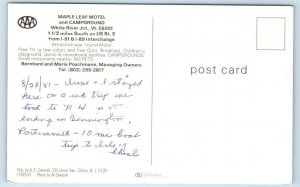 AAA
MAPLE LEAF MOTEL
and CAMPGROUND
White River Jct., Vt. 05001
1-1/2 miles South on US Rt. 5
from I-91 & I-89 Interchange
Attractive year round Motel
Free TV (a few color) and free Cont. Breakfast. Children's
playground, picnic & recreational facilities. CAMPGROUND
Good restaurants nearby. NO PETS.
Bernhard and Maria Poschmann, Managing Owners
Tel. (802) 295-2817
post card
8/28/81 - June & I stayed
here on a trip we
took to N H & VT
ending in Bennington.
Portsmouth - 10 mi boat
trip to Isles of
Shoals